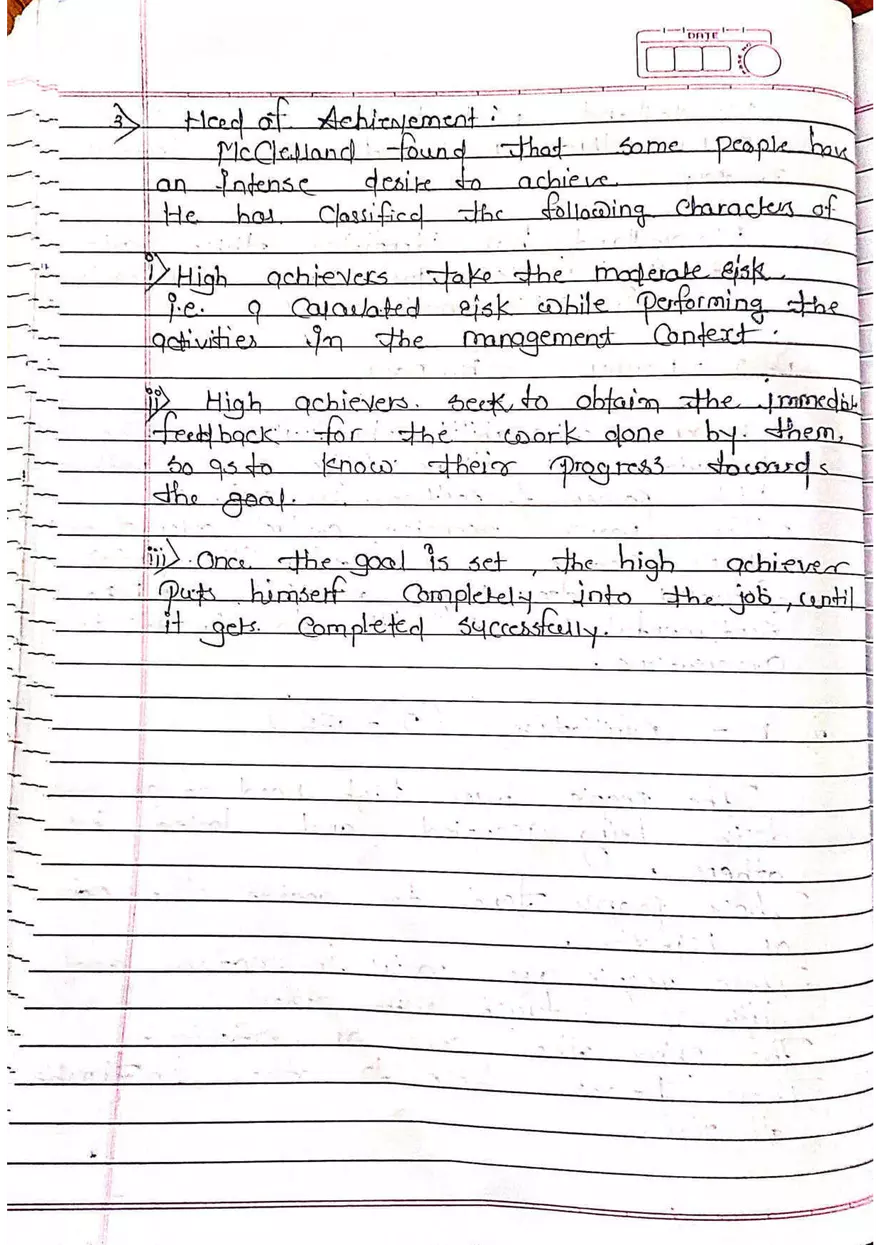 DATE
3) Need of Achievement :
McClelland found that some people have
an Intense desire to achieve.
He has Classified the following Characters of
i) High achievers take the moderate risk.
i.e. a Calculated risk while Performing the
activities In the management Context.
ii) High achievers. seek to obtain the immediate
feedback for the work done by them,
so as to know their Progress towards
the goal.
iii) Once the goal is set, the high achiever
Puts himself Completely into the job, until
it gets Completed successfully.